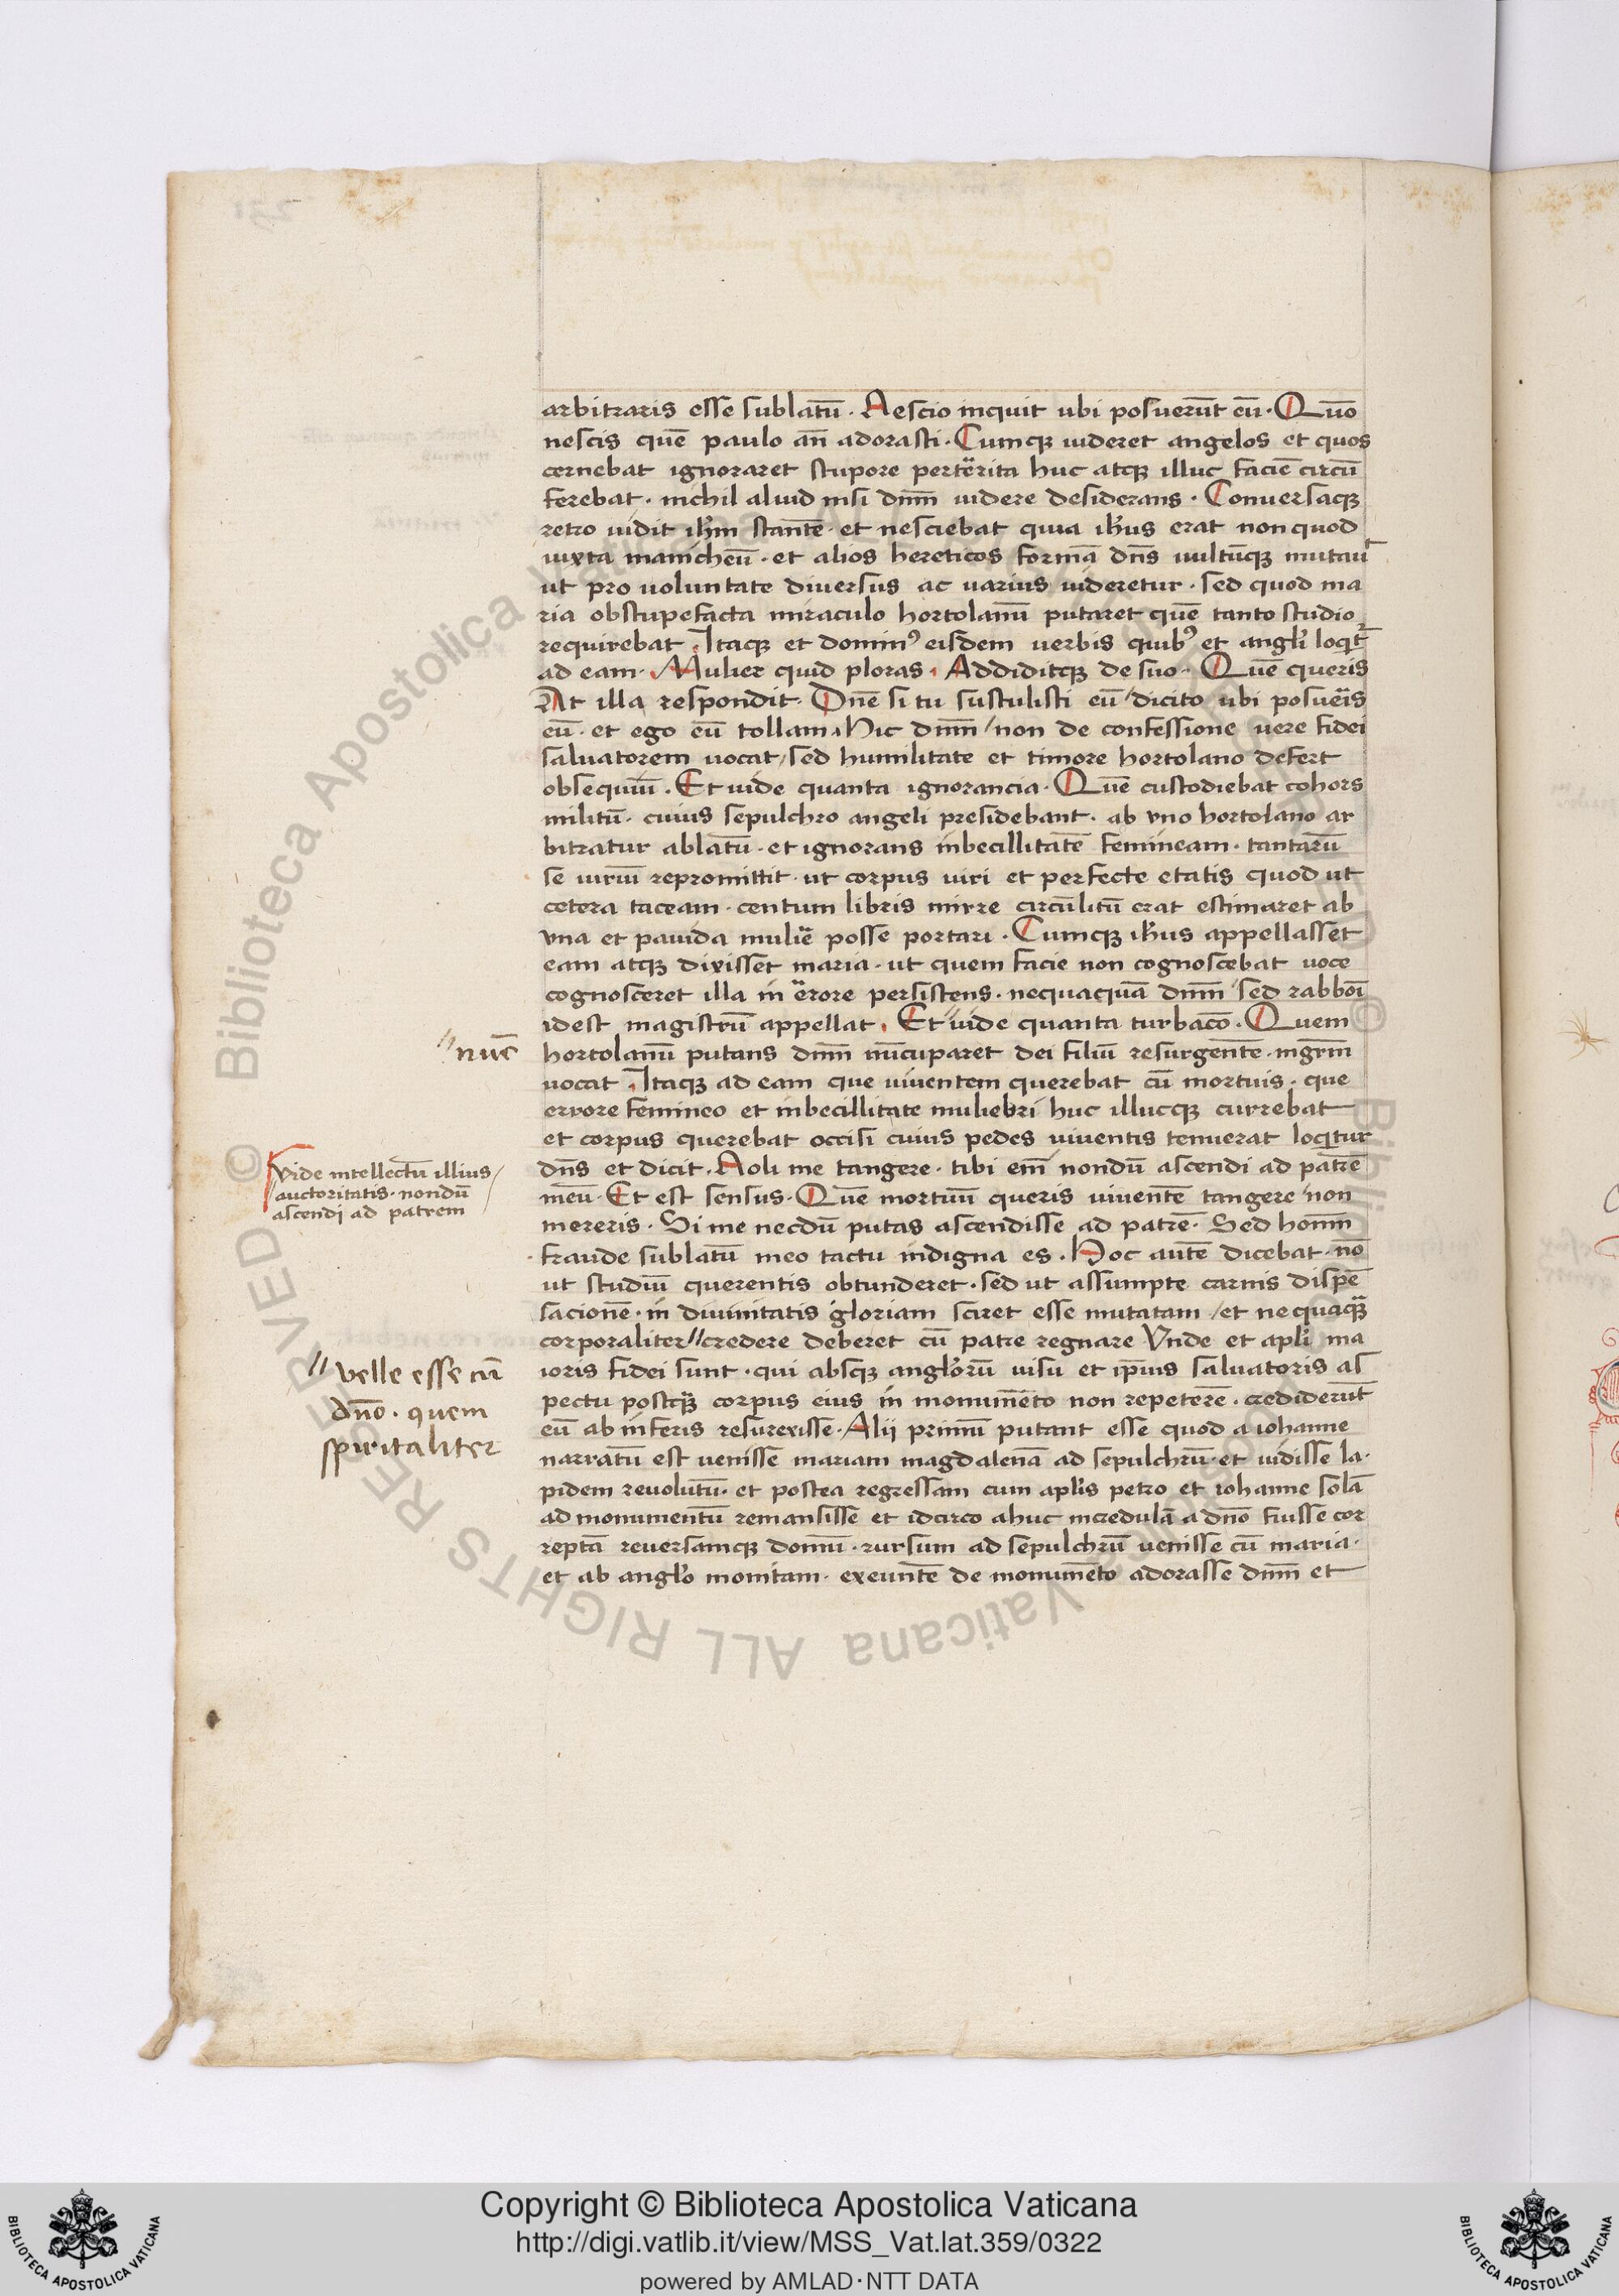 arbitraris esse sublatū. Nescio inquit ubi posuerūt eū. Quō
nescis quē paulo añ adorasti. Cumqꝫ uideret angelos et quos
cernebat ignoraret stupore perterrita huc atqꝫ illuc faciē circū
ferebat. nichil aliud nisi dnm̄ uidere desiderans. Conuersaqꝫ
retro uidit ihm̄ stantē. et nesciebat quia ihūs erat non quod
iuxta manicheū. et alios hereticos formā dn̄s uultūqꝫ mutauꝰ
ut pro uoluntate diuersus ac uarius uideretur. sed quod ma
ria obstupefacta miraculo hortolanū putaret quē tanto studio
requirebat. Itaqꝫ et dominꝰ eisdem uerbis quibꝰ et angłi loqt̄
ad eam. Mulier quid ploras. Addiditqꝫ de suo. Quē queris
At illa respondit. Dn̄e si tu sustulisti eū / dicito ubi posuēis
eū. et ego eū tollam. Hic dnm̄ / non de confessione uere fidei
saluatorem uocat / sed humilitate et timore hortolano defert
obsequiū. Et uide quanta ignorancia. Quē custodiebat cohors
militū. cuius sepulchro angeli presidebant. ab vno hortolano ar
bitratur ablatū. et ignorans inbecillitatē femineam. tantarū
se uiriū repromittit. ut corpus uiri et perfecte etatis quod ut
cetera taceam. centum libris mirre circūlitū erat estimaret ab
vna et pauida muliē posse portari. Cumqꝫ ihūs appellasset
eam atqꝫ dixisset maria. ut quem facie non cognoscebat uoce
cognosceret illa in errore persistens. nequaquā dnm̄ sed rabboī
idest magistrū appellat. Et // uide quanta turbaco. Quem
// nuē
hortolanū putans dnm̄ nūcuparet dei filiū resurgentē. mgrm̄
uocat. Itaqꝫ ad eam que uiuentem querebat cū mortuis. que
errore femineo et inbecillitate muliebri huc illucqꝫ currebat
et corpus querebat occisi cuius pedes uiuentis tenuerat loqitur
dn̄s et dicit. Noli me tangere. tibi em̄ nondū ascendi ad patrē
vide intellectū illius /
auctoritatis. nondū
ascendi ad patrem
meū. Et est sensus. Quē mortuū queris uiuentē tangere non
mereris. Si me necdū putas ascendisse ad patrē. Sed hoīm
fraude sublatū meo tactu indigna es. Hoc autē dicebat. nō
ut studiū querentis obtunderet. sed ut assumpte carnis dispē
sacionē. in diuinitatis gloriam sciret esse mutatam / et nequaqꝫ
corporaliter // credere deberet cū patre regnare Vnde et apłi ma
// velle esse cū
dn̄o. quem
spiritaliter
ioris fidei sunt. qui absqꝫ angłorū uisu et ip̄ius saluatoris as
pectu postqꝫ corpus eius in monumēto non repeterē. crediderūt
eū ab inferis resurexisse. Alij primū putant esse quod a iohanne
narratū est uenisse mariam magdalenā ad sepulchrū. et uidisse la.
pidem reuolutū. et postea regressam cum apłis petro et iohanne solā
ad monumentū remansisse et idcirco ahuc incredulā a dn̄o fuisse cor
reptā reuersamqꝫ domū. rursum ad sepulchrū uenisse cū maria.
et ab angło monitam. exeuntē de monumēto adorasse dnm̄ et
Copyright © Biblioteca Apostolica Vaticana
http://digi.vatlib.it/view/MSS_Vat.lat.359/0322
powered by AMLAD·NTT DATA
BIBLIOTECA APOSTOLICA VATICANA
BIBLIOTECA APOSTOLICA VATICANA